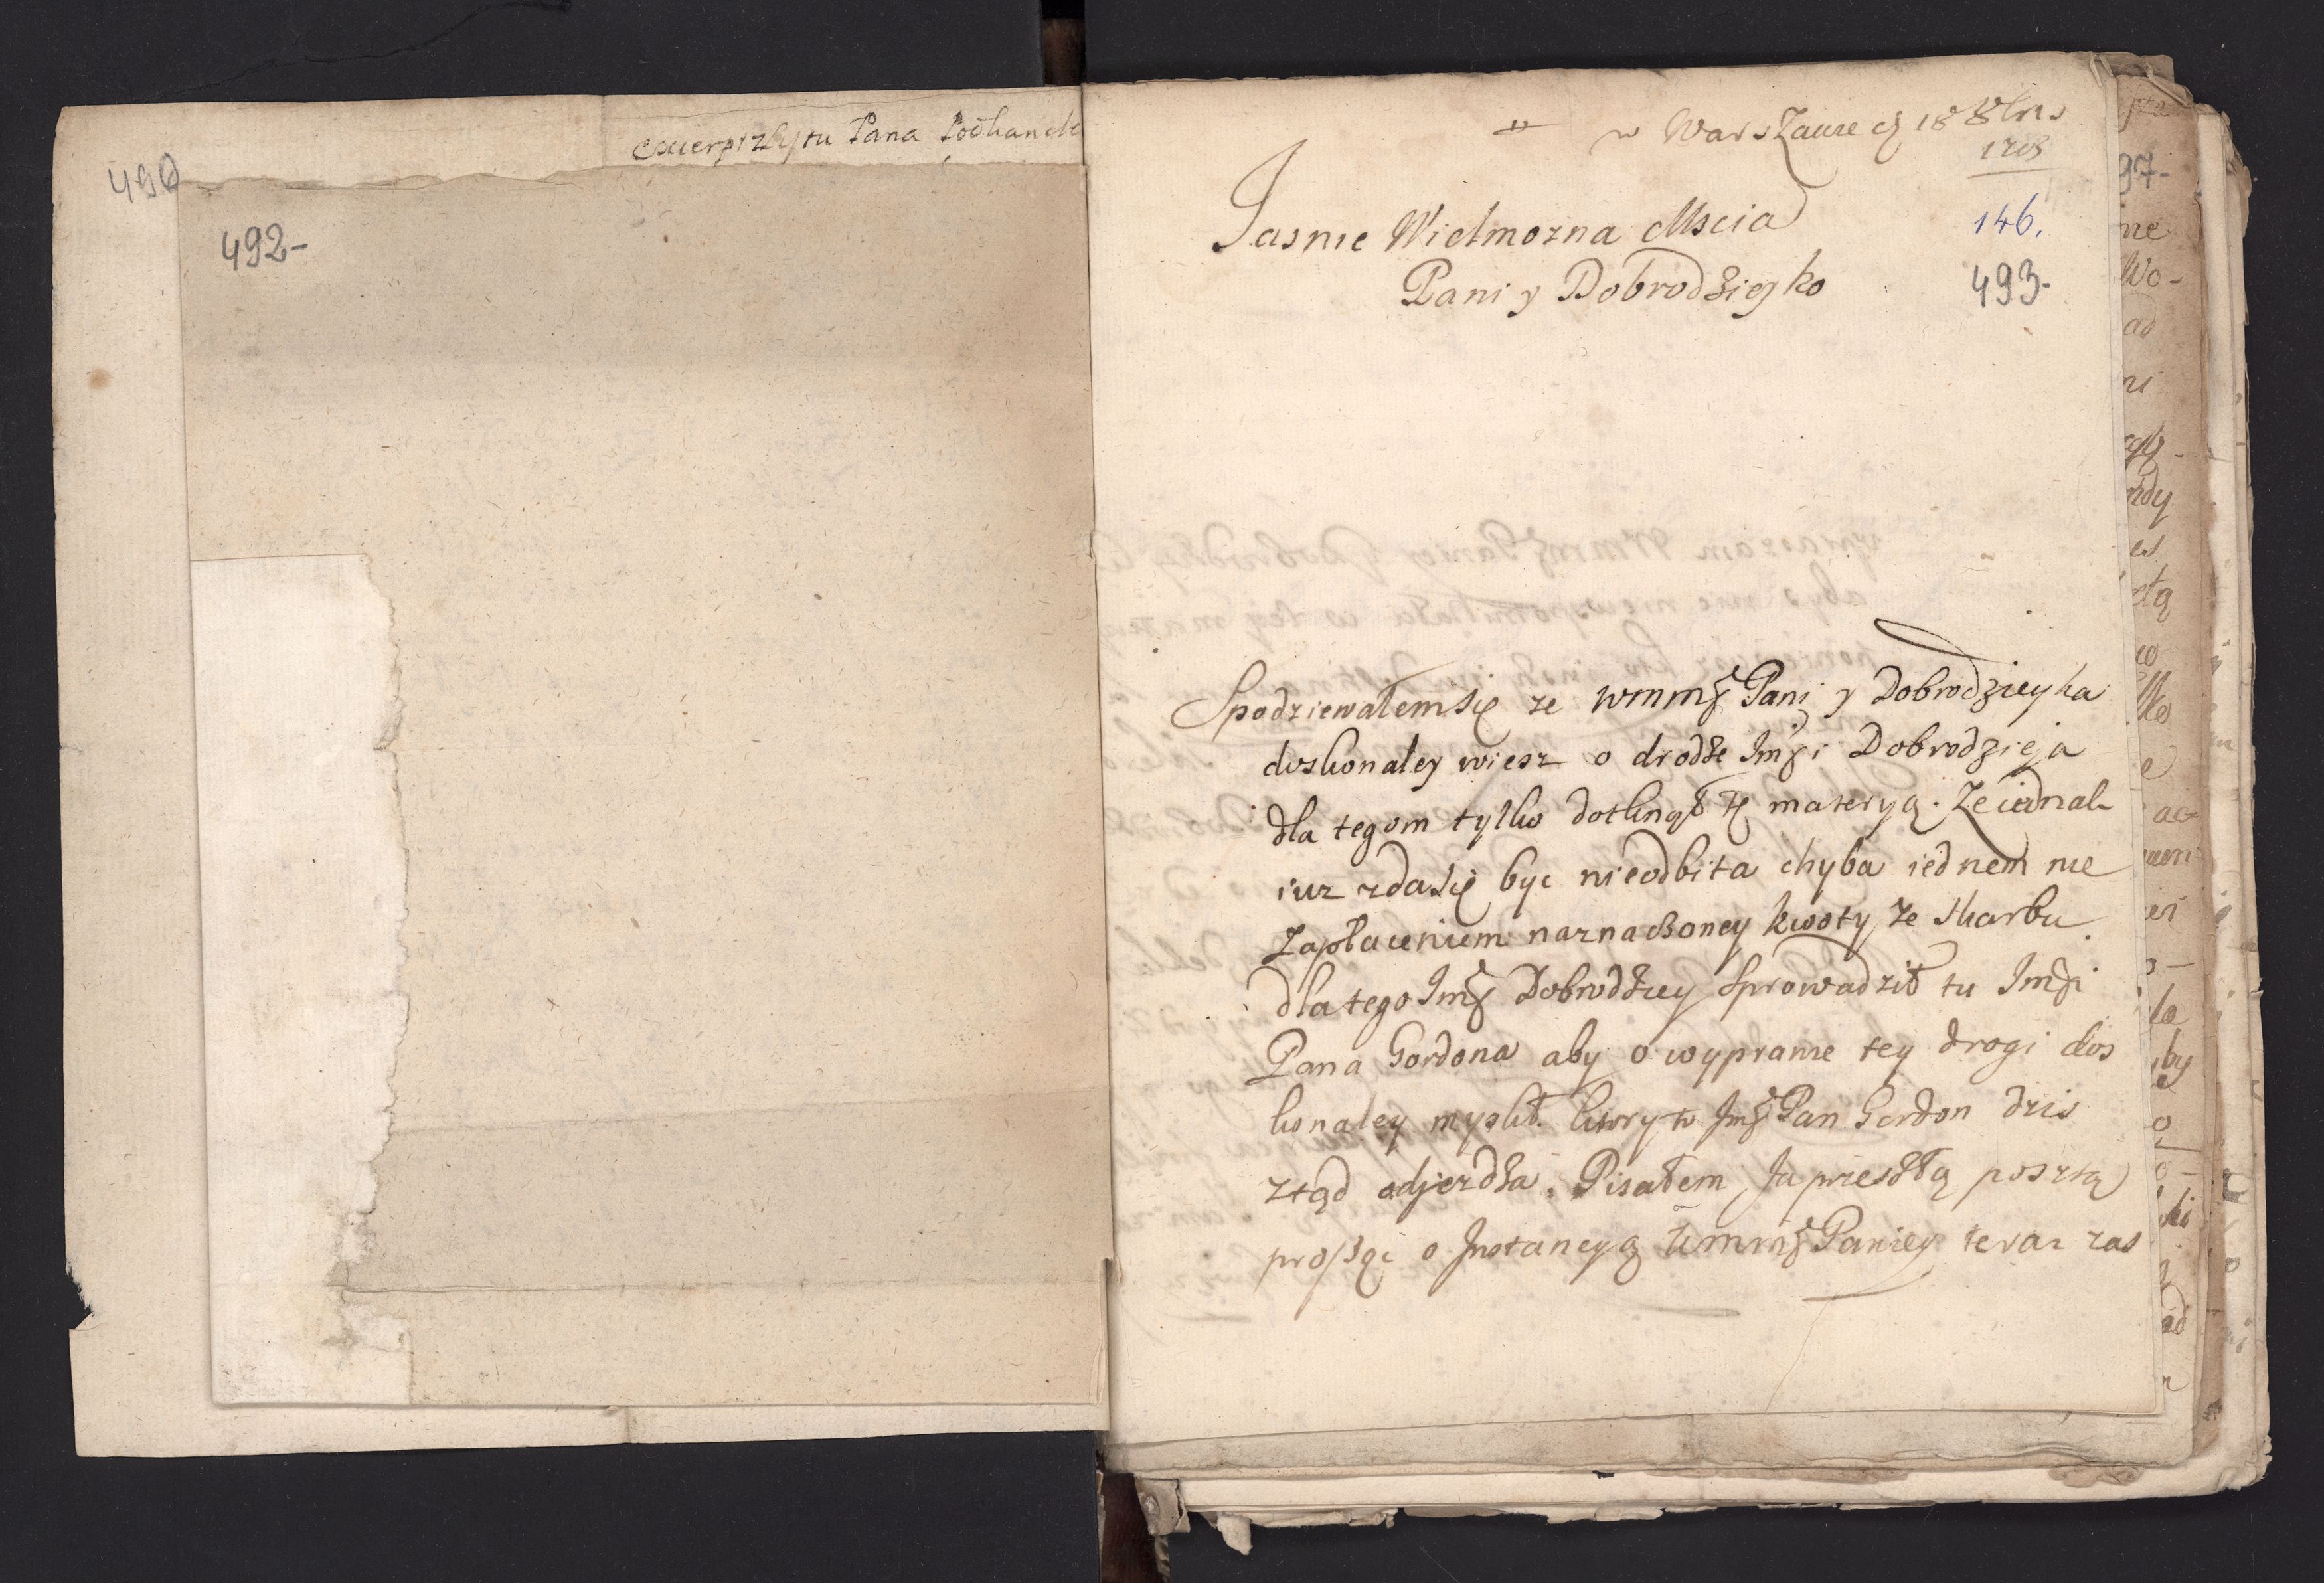 excerpt z listu Pana Podkancle
490
492-
w Warszawie d 18 8bris
1703
Jasnie Wielmozna Mscia
146.
Pani y Dobrodzieyko
493-
Spodziewałem się ze WMMP Pani y Dobrodzieyka
doskonaley wiesz o drodze Jmsci Dobrodzieja
dla tegom tylko dotknął tę materyą. Ze iednak
iuz zda się byc nieodbita chyba iednem nie
zapłaceniem naznaczoney kwoty ze skarbu
dla tego Jmsc Dobrodziey sprowadził tu Jmsci
Pana Gordona aby o wyprawie tey drogi dos
konaley myslił. ktory to Jmsc Pan Gordon dzis
ztąd odjezdza. Pisałem Ja przeszłą posztą
prosząc o Instancyą WMMP Paniey teraz zas